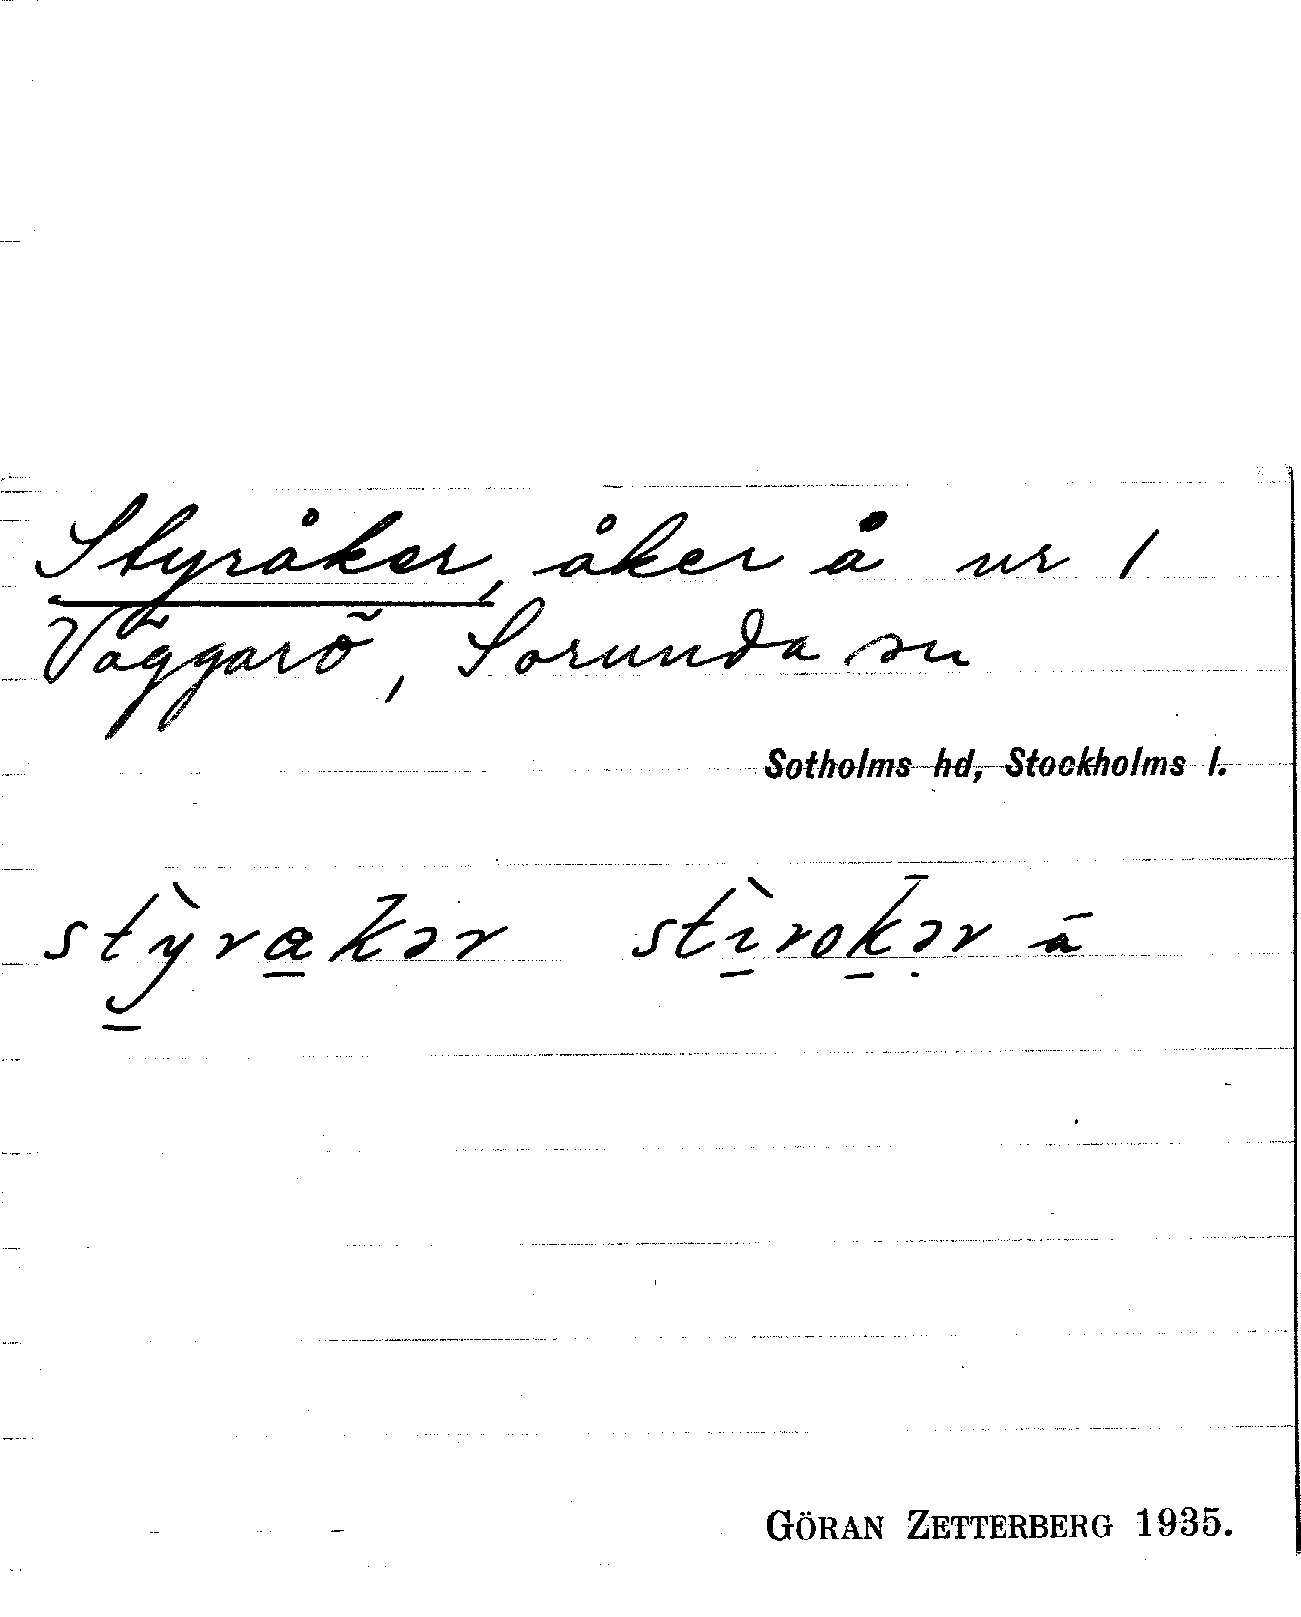 Styråker, åker å nr 1
Väggarö, Sorunda sn
Sotholms hd, Stockholms l.
stỳ̱ra̱kər stì̱roḵə̣r ā
GÖRAN ZETTERBERG 1935.